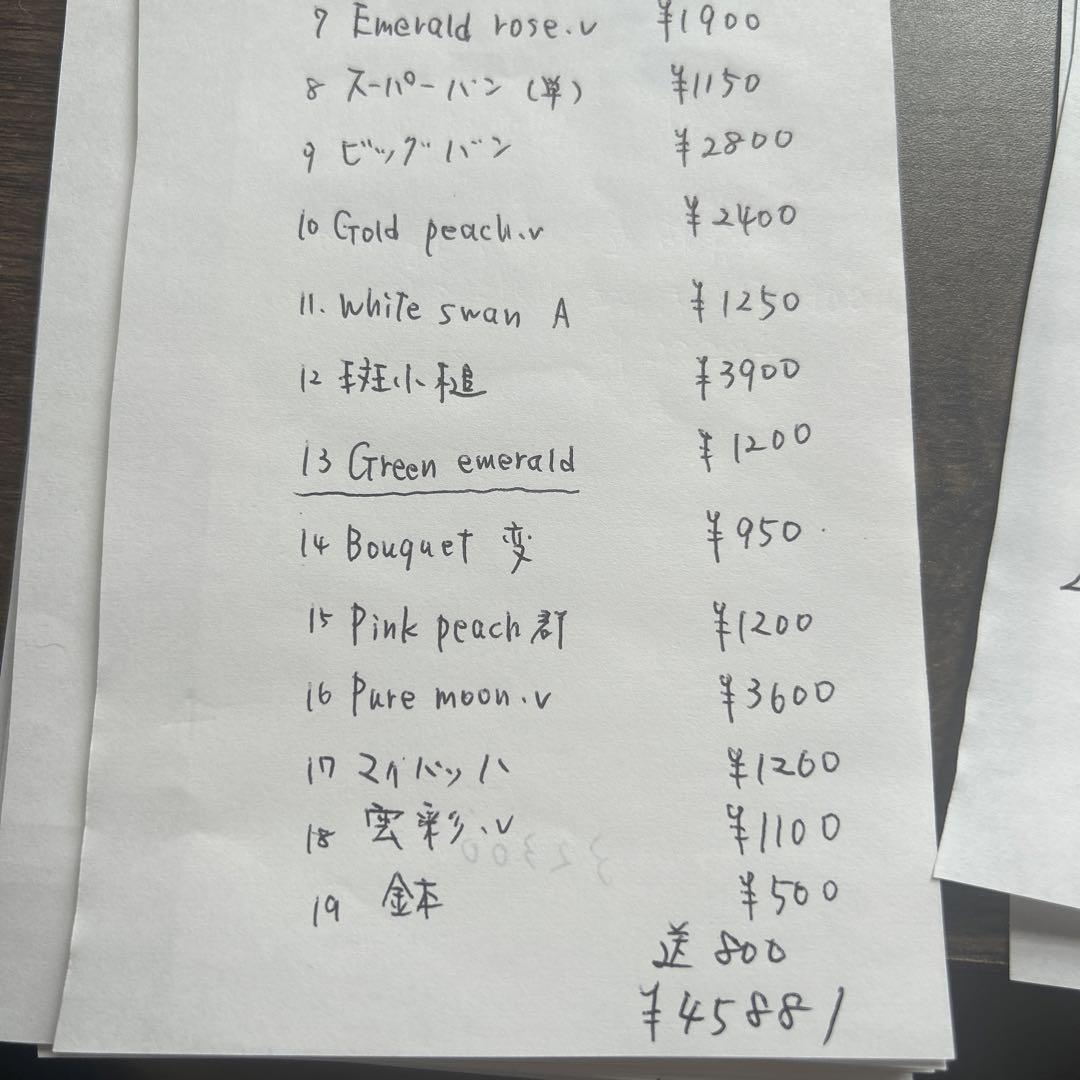 7 Emerald rose.v ¥1900
8 スーパーバン(単) ¥1150
9 ビッグバン ¥2800
10 Gold peach.v ¥2400
11. White swan A ¥1250
12 小槌 ¥3900
13 Green emerald ¥1200
14 Bouquet 変 ¥950
15 Pink peach 群 ¥1200
16 Pure moon.v ¥3600
17 マイバッハ ¥1200
18 雲彩.v ¥1100
19 ¥500
送 800
¥45881